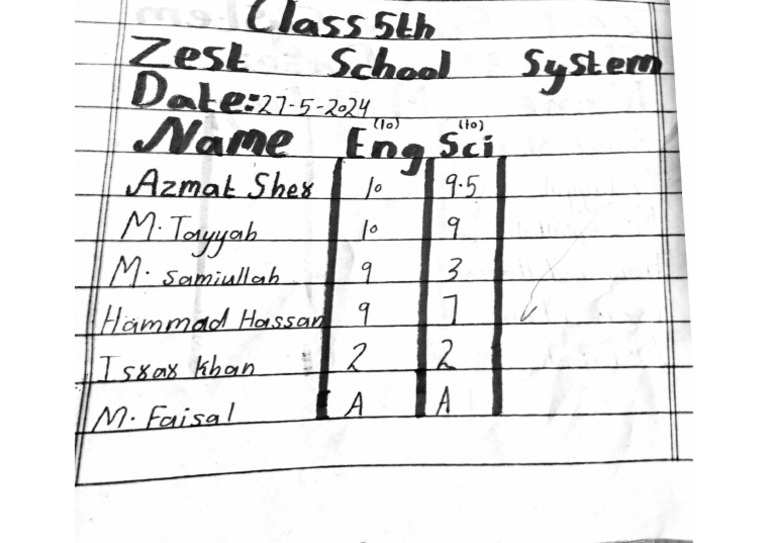 Class 5th
Zest School System
Date: 27-5-2024
Name Eng (10) Sci (10)
Azmat Sher 10 9.5
M. Tayyab 10 9
M. Samiullah 9 3
Hammad Hassan 9 7
Israr Khan 2 2
M. Faisal A A